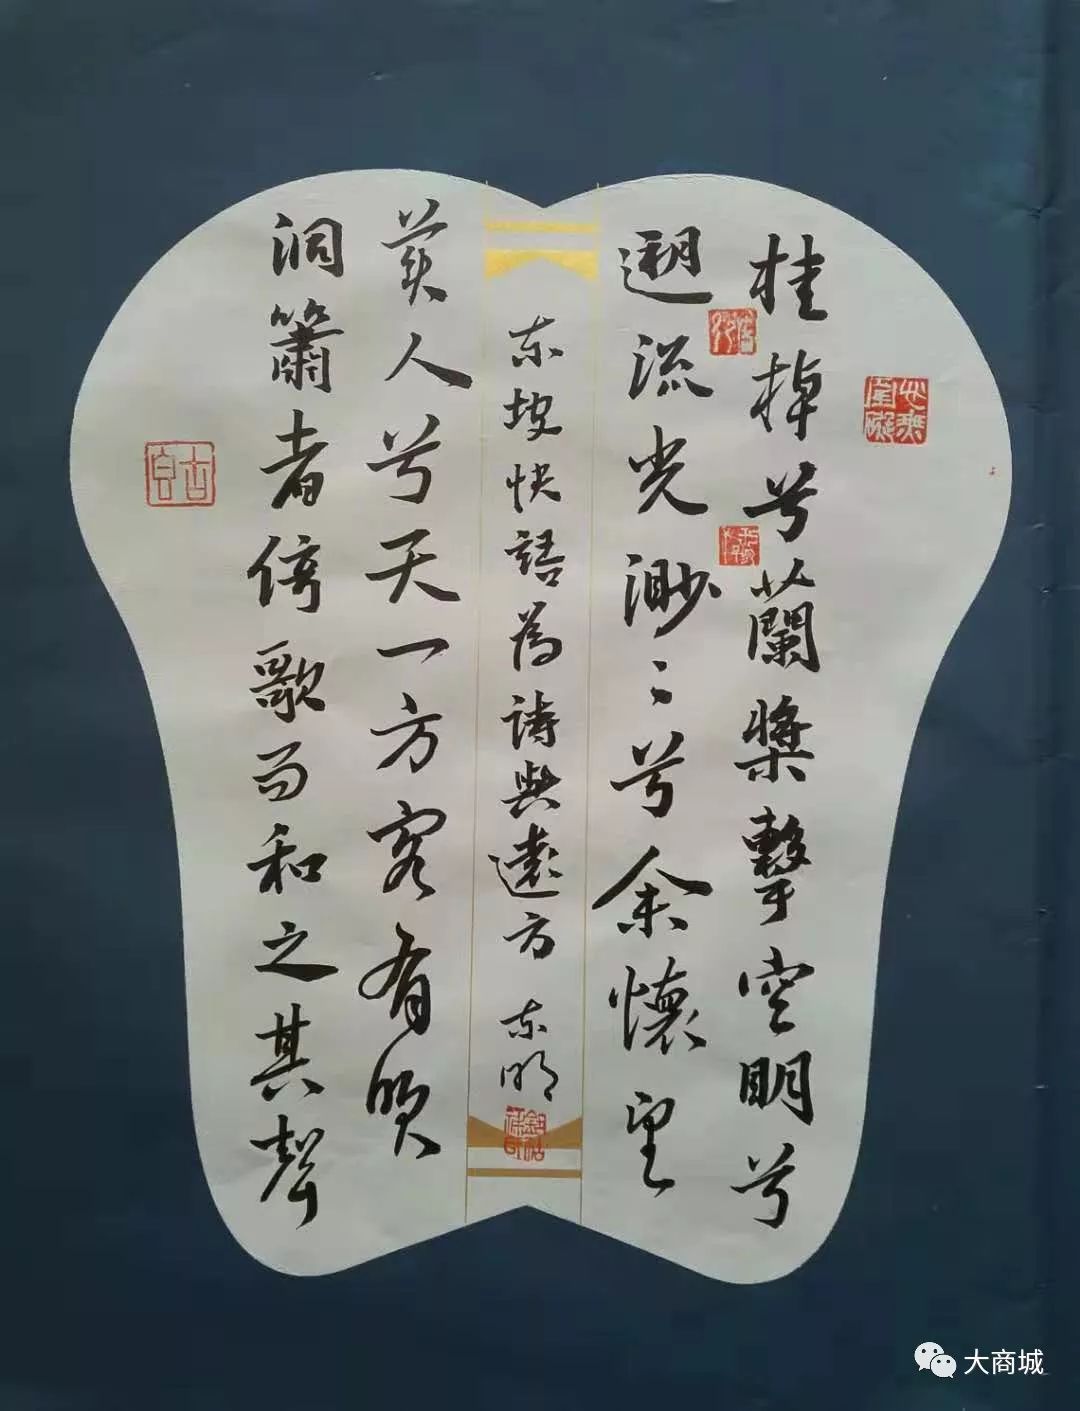 桂棹兮蘭槳擊空明兮
遡流光渺〻兮余懷望
东坡快語為詩與遠方 东明
美人兮天一方客有吹
洞簫者倚歌而和之其聲
大商城